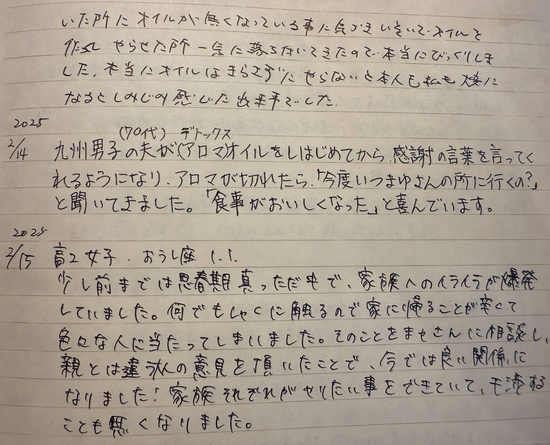 いた所にオイルが無くなっている事に気づきいそいでオイルを
作成しやらせた所一気に落ちついてきたので本当にびっくりしま
した。本当にオイルはきらさずにやらないと本人も私も大変に
なるとしみじみ感じた出来事でした。
2025
2/14 九州男子の夫が(アロマ)オイルをしはじめてから、感謝の言葉を言ってく
(70代) デトックス
れるようになり、アロマが切れたら、「今度いつまゆさんの所に行くの?」
と聞いてきました。「食事がおいしくなった」と喜んでいます。
2025
2/15 高2女子.おうし座 I.I.
少し前までは思春期真っただ中で、家族へのイライラが爆発
していました。何でもしゃくに触るので家に帰ることが辛くて
色々な人に当たってしまいました。そのことをまゆさんに相談し、
親とは違う人の意見を頂いたことで、今では良い関係に
なりました!家族それぞれがやりたい事をできていて、干渉する
ことも無くなりました。